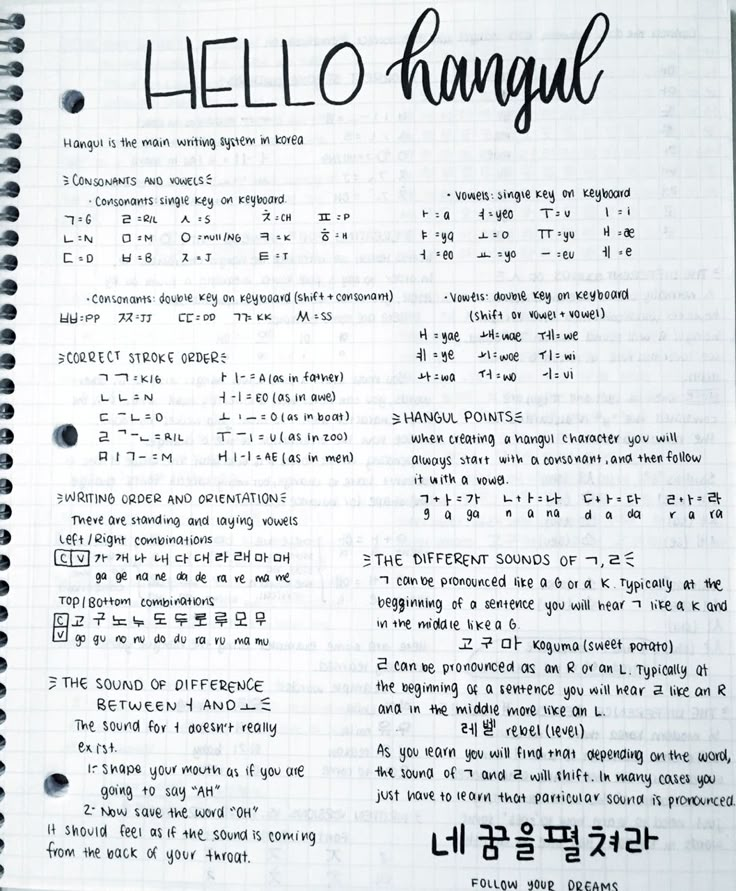 HELLO hangul
Hangul is the main writing system in Korea
CONSONANTS AND VOWELS
· Consonants: single key on keyboard.
ㄱ=G ㄹ=R/L ㅅ=S ㅊ=CH ㅍ=P
ㄴ=N ㅁ=M ㅇ=null/NG ㅋ=K ㅎ=H
ㄷ=D ㅂ=B ㅈ=J ㅌ=T
· Consonants: double key on keyboard (shift + consonant)
ㅃ=PP ㅉ=JJ ㄸ=DD ㄲ=KK ㅆ=SS
· Vowels: single key on keyboard
ㅏ=a ㅕ=yeo ㅜ=u ㅣ=i
ㅑ=ya ㅗ=o ㅠ=yu ㅐ=ae
ㅓ=eo ㅛ=yo ㅡ=eu ㅔ=e
· Vowels: double key on keyboard
(shift or vowel + vowel)
ㅒ=yae ㅙ=wae ㅞ=we
ㅖ=ye ㅚ=woe ㅟ=wi
ㅘ=wa ㅝ=wo ㅢ=vi
CORRECT STROKE ORDER
ㄱ ㄱ=K/G
ㄴ ㄴ=N
ㄷ ㅡ ㄴ=D
ㄹ ㄱ ㅡ ㄴ=R/L
ㅁ ㅣ ㄱ ㅡ=M
ㅏ ㅣ ㅡ=A (as in father)
ㅓ ㅡ ㅣ=EO (as in awe)
ㅗ ㅣ ㅡ=O (as in boat)
ㅜ ㅡ ㅣ=U (as in zoo)
ㅐ ㅣ ㅡ ㅣ=AE (as in men)
WRITING ORDER AND ORIENTATION
There are standing and laying vowels
Left/Right combinations
C V 가 개 나 내 다 대 라 래 마 매
ga ge na ne da de ra re ma me
Top/Bottom combinations
C 고 구 노 누 도 두 로 루 모 무
V go gu no nu do du ro ru mo mu
THE SOUND OF DIFFERENCE
BETWEEN ㅓ AND ㅗ
The sound for ㅓ doesn't really
exist.
1- Shape your mouth as if you are
going to say "AH"
2- Now save the word "OH"
It should feel as if the sound is coming
from the back of your throat.
HANGUL POINTS
When creating a hangul character you will
always start with a consonant, and then follow
it with a vowel.
ㄱ+ㅏ=가 ㄴ+ㅏ=나 ㄷ+ㅏ=다 ㄹ+ㅏ=라
g a ga n a na d a da r a ra
THE DIFFERENT SOUNDS OF ㄱ, ㄹ
ㄱ can be pronounced like a G or a K. Typically at the
begginning of a sentence you will hear ㄱ like a K and
in the middle like a G.
고 구 마 Koguma (sweet potato)
ㄹ can be pronounced as an R or an L. Typically at
the beginning of a sentence you will hear ㄹ like an R
and in the middle more like an L.
레 벨 rebel (level)
As you learn you will find that depending on the word,
the sound of ㄱ and ㄹ will shift. In many cases you
just have to learn that particular sound is pronounced.
네 꿈을 펼쳐라
FOLLOW YOUR DREAMS